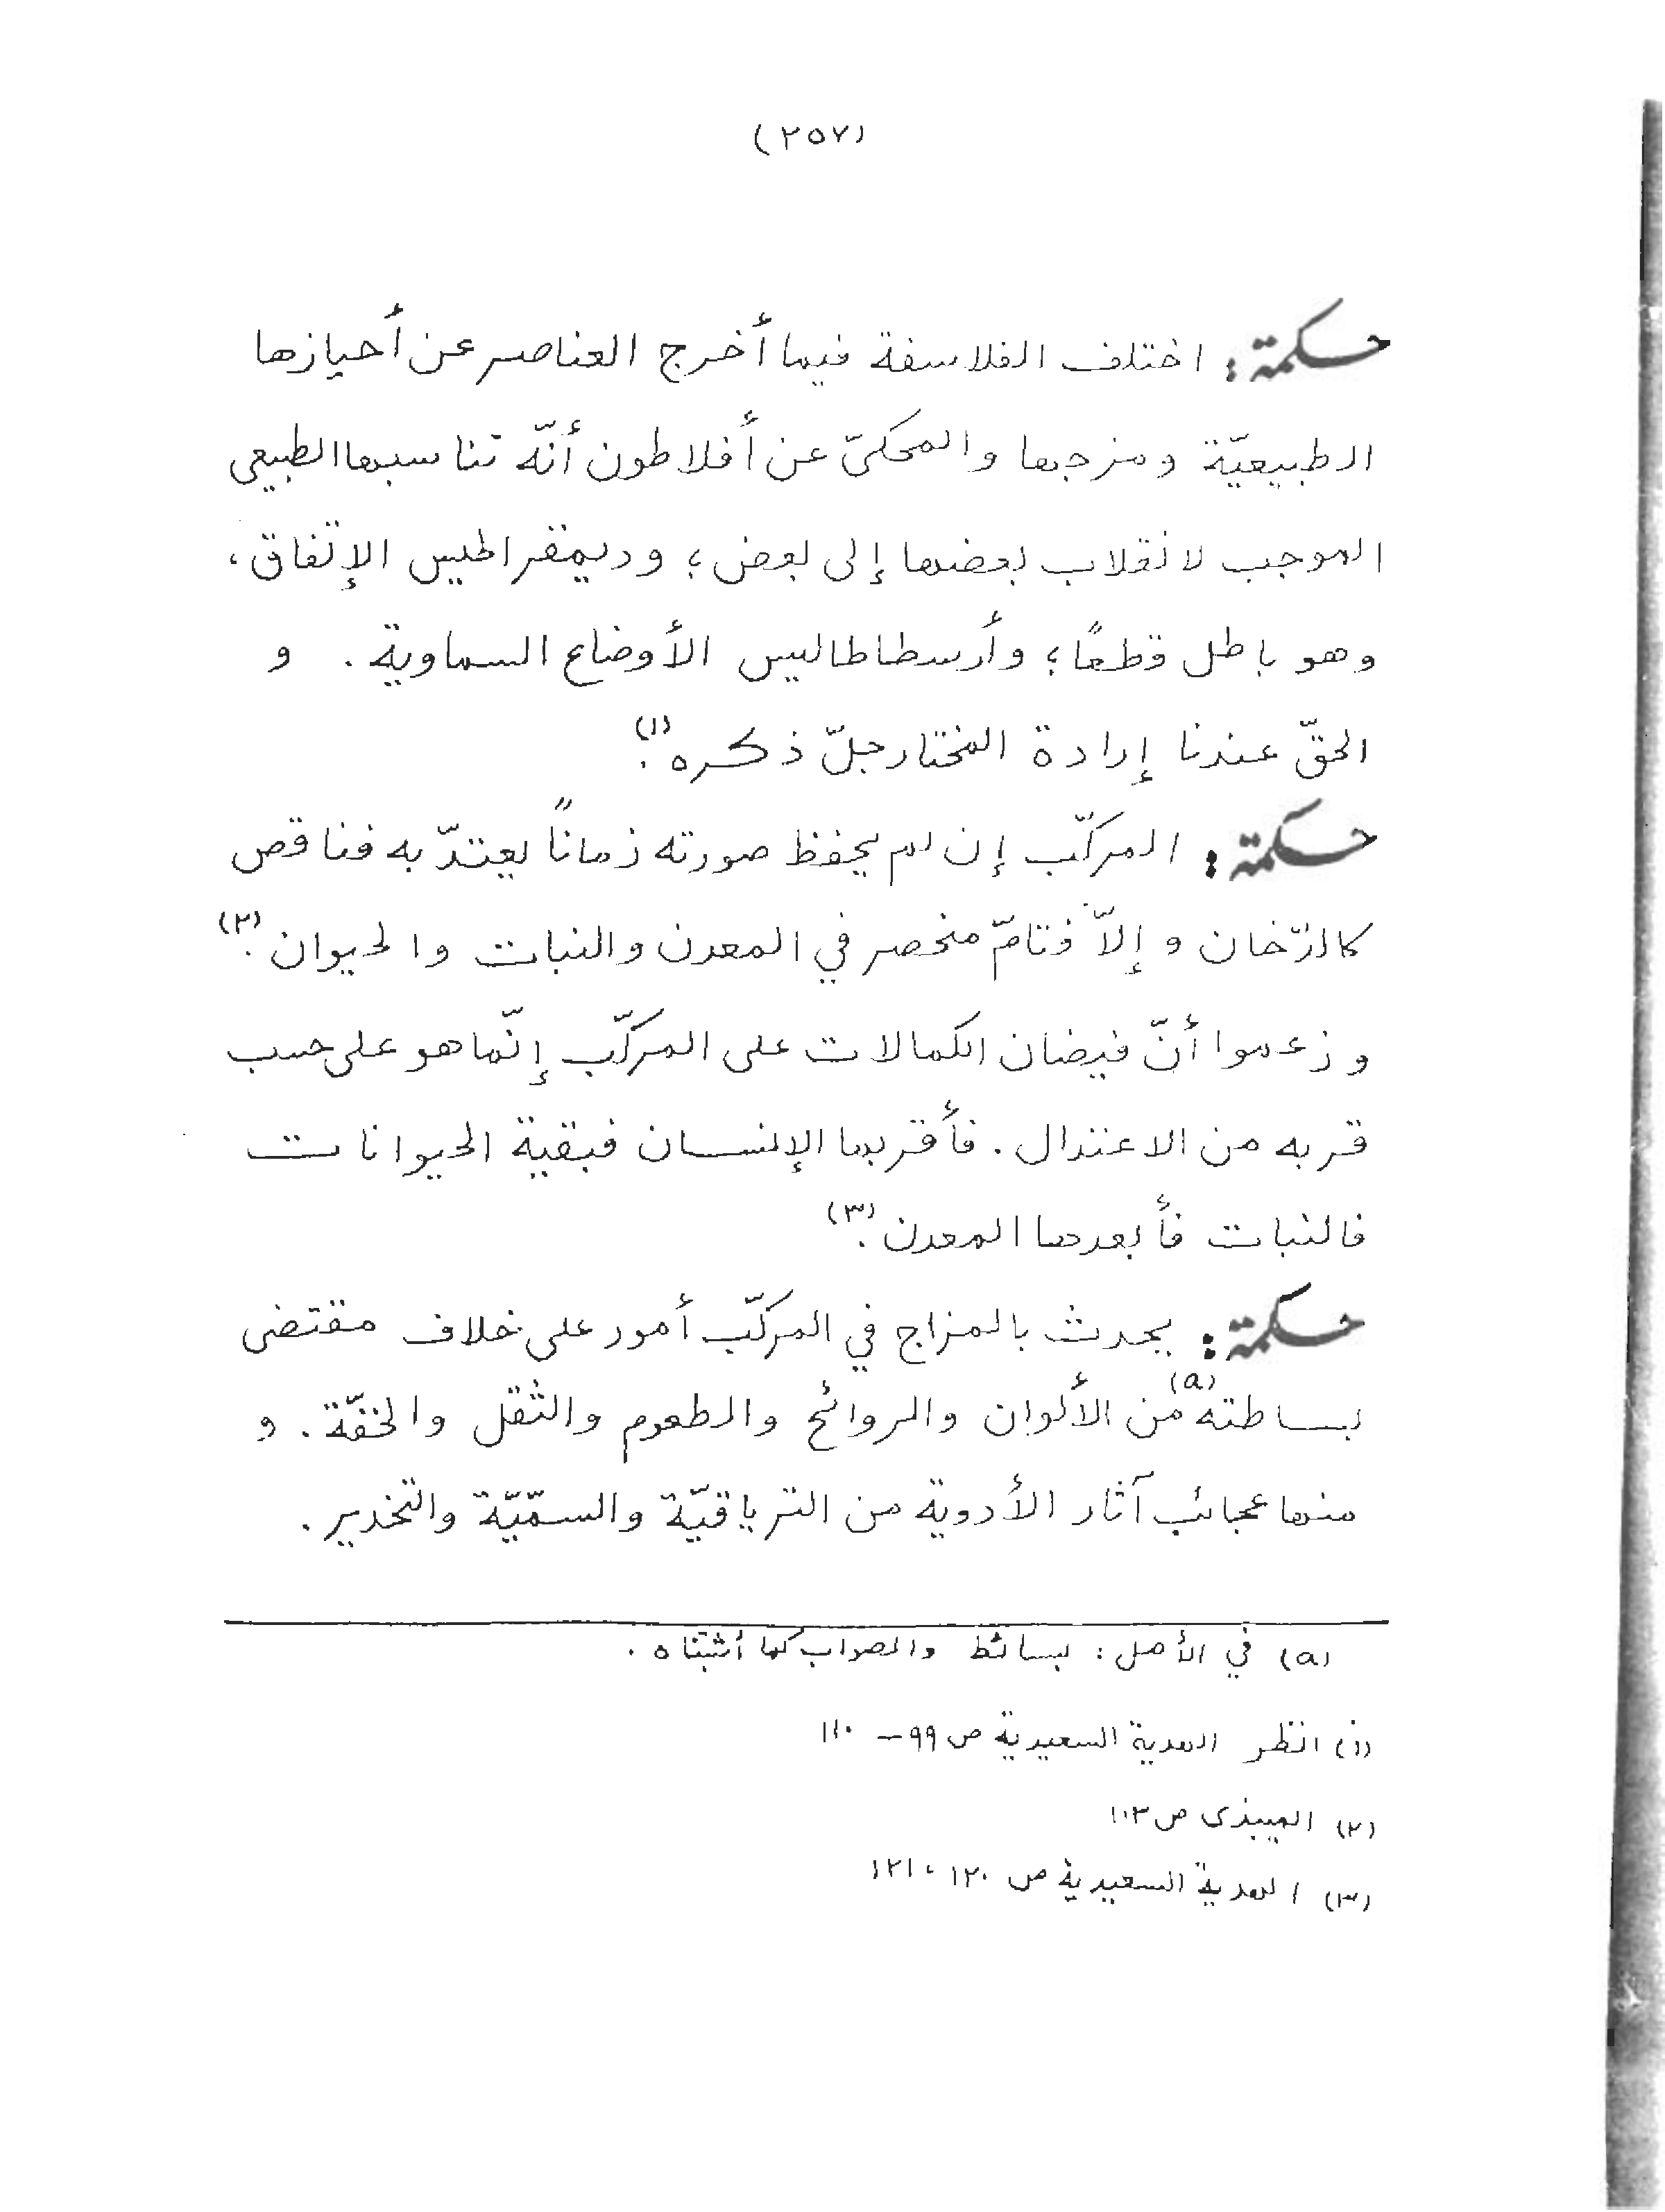 (٢٥٧)
حكمة: اختلف الفلاسفة فيما أخرج العناصر عن أحيازها
الطبيعيّة ومزجها والمحكيّ عن أفلاطون أنّه تناسبها الطبيعي
الموجب لانقلاب بعضها إلى بعض؛ وديمقراطيس الإتفاق،
وهو باطل قطعًا؛ وأرسطاطاليس الأوضاع السماوية. و
الحقّ عندنا إرادة المختار جلّ ذكره.(١)
حكمة: المركّب إن لم يحفظ صورته زمانًا يعتدّ به فناقص
كالدّخان و إلاّ فتامّ منحصر في المعدن والنبات والحيوان.(٢)
وزعموا أنّ فيضان الكمالات على المركّب إنّما هو على حسب
قربه من الاعتدال. فأقربها الإنسان فبقية الحيوانات
فالنبات فأبعدها المعدن.(٣)
حكمة: يحدث بالمزاج في المركّب أمور على خلاف مقتضى
بساطته(a) من الألوان والروائح والطعوم والثقل والخفّة. و
منها عجائب آثار الأدوية من الترياقيّة والسمّيّة والتخدير.
(a) في الأصل: بسائط والصواب كما أثبتناه.
(١) انظر الهدية السعيدية ص ٩٩ – ١١٠
(٢) الميبذى ص ١٠٣
(٣) الهدية السعيدية ص ١٢٠، ١٢١